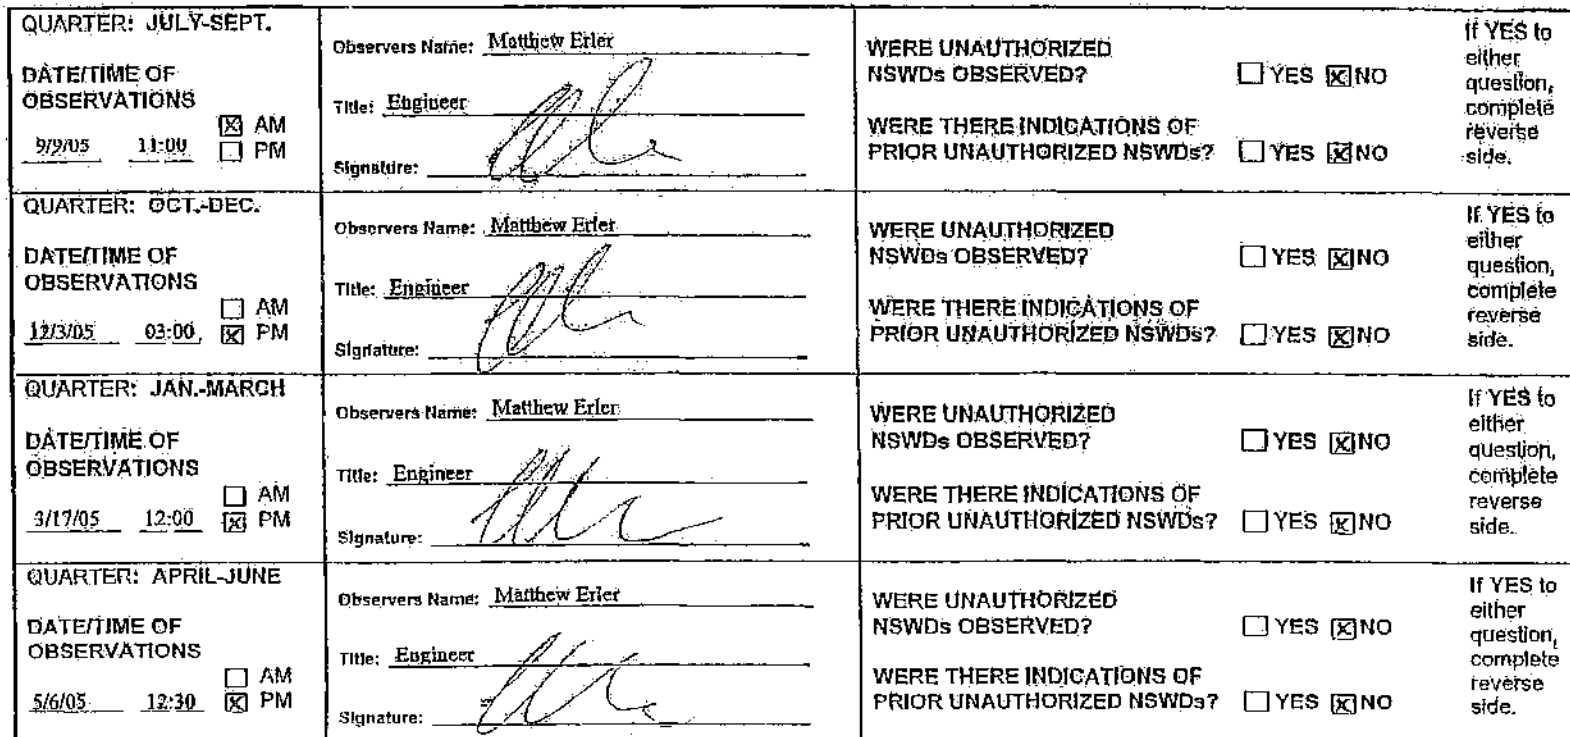 QUARTER: JULY-SEPT.
DATE/TIME OF
OBSERVATIONS
☒ AM
9/9/05 11:00 ☐ PM
Observers Name: Matthew Erler
Title: Engineer
Signature:
WERE UNAUTHORIZED
NSWDs OBSERVED? ☐ YES ☒ NO
WERE THERE INDICATIONS OF
PRIOR UNAUTHORIZED NSWDs? ☐ YES ☒ NO
If YES to
either
question,
complete
reverse
side.
QUARTER: OCT.-DEC.
DATE/TIME OF
OBSERVATIONS
☐ AM
12/3/05 03:00 ☒ PM
Observers Name: Matthew Erler
Title: Engineer
Signature:
WERE UNAUTHORIZED
NSWDs OBSERVED? ☐ YES ☒ NO
WERE THERE INDICATIONS OF
PRIOR UNAUTHORIZED NSWDs? ☐ YES ☒ NO
If YES to
either
question,
complete
reverse
side.
QUARTER: JAN.-MARCH
DATE/TIME OF
OBSERVATIONS
☐ AM
3/17/05 12:00 ☒ PM
Observers Name: Matthew Erler
Title: Engineer
Signature:
WERE UNAUTHORIZED
NSWDs OBSERVED? ☐ YES ☒ NO
WERE THERE INDICATIONS OF
PRIOR UNAUTHORIZED NSWDs? ☐ YES ☒ NO
If YES to
either
question,
complete
reverse
side.
QUARTER: APRIL-JUNE
DATE/TIME OF
OBSERVATIONS
☐ AM
5/6/05 12:30 ☒ PM
Observers Name: Matthew Erler
Title: Engineer
Signature:
WERE UNAUTHORIZED
NSWDs OBSERVED? ☐ YES ☒ NO
WERE THERE INDICATIONS OF
PRIOR UNAUTHORIZED NSWDs? ☐ YES ☒ NO
If YES to
either
question,
complete
reverse
side.